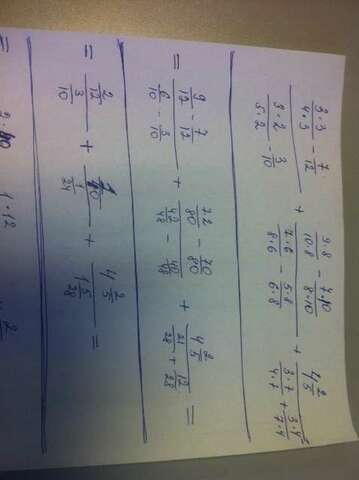 (3·3/4·3 − 7/12)/(3·2/5·2 − 3/10) + (9·8/10·8 − 7·10/8·10)/(7·6/8·6 − 5·8/6·8) + 4 2/5/(3·7/4·7 + 3·4/7·4)
= (9/12 − 7/12)/(6/10 − 3/10) + (72/80 − 70/80)/(42/48 − 40/48) + 4 2/5/(21/28 + 12/28) =
= 2/12/3/10 + 1/40/1/24 + 4 2/5/1 5/28 =
= 2·10 1·12